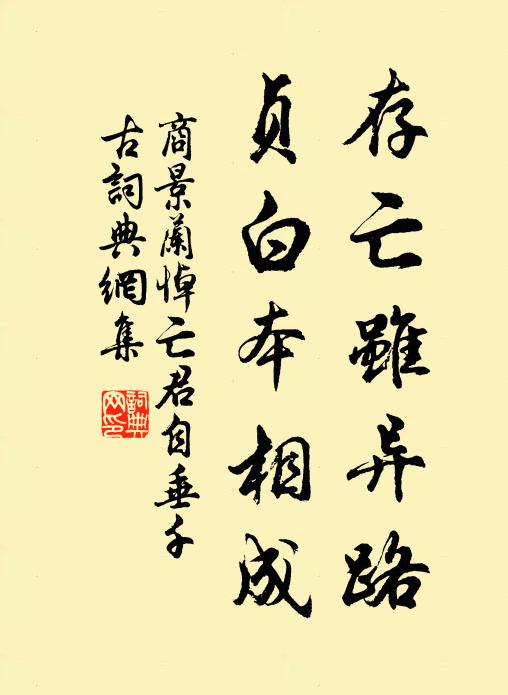 存亡雖异路
貞白本相成
商景蘭悼亡君自垂千
古詞典網集
詞典网印